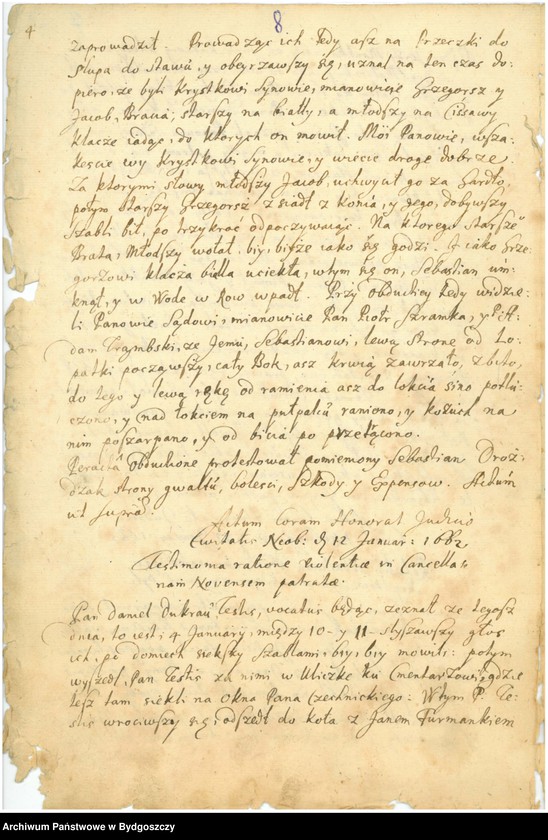 4
8
zaprowadził. Prowadząc ich tedy asz na Przeczki do
słupa do Stawu, y obeyrzawszy się, uznał na ten czas do-
piero, ze byli Krystkowi Synowie, mianowicie Grzegorsz y
Jacob, Bracia; starszy na białły, a młodszy na Cissawy
klacze iadąc, do ktorych on mowił. Moi Panowie, wsza-
kescie wy Krystkowi Synowie, y wiecie drogę dobrze.
Za ktorymi słowy młodszy Jacob, uchwycił go za Gardło,
potym starszy Grzegorsz z siadł z konia, y Jego, dobywszy
Szabli bił, po trzykroc odpoczywaiąc. Na ktorego Starsze°
Brata, Młodszy wołał, biy, biyze iako się godzi. A iako Grze-
gorzowi klacza biała uciekła, wtym się on, Sebastian um-
knął, y w Wodę w Row wpadł. Przy Obductiey tedy widzie-
li Panowie Sądowi, mianowicie Pan Piotr Szramka, y P.
dam Trąmbski, ze Jemu, Sebastianowi, lewą stronę od Ło-
patki począwszy, cały Bok, asz krwią zawrzało, zbito,
do tego y lewą rękę od ramienia asz do łokcia sino potłu-
czono, y nad łokciem na pułpalcu raniono, y kożuch na
nim poszarpano, y od bicia po
Peracta Obductione protestował pomieniony Sebastian Droz-
dzak strony gwałtu, bolesci, Szkody y Expensow. Actum
ut supra.
Actum Coram Honorat Judicio
Civitatis Neob: d 12 Januar: 1662
Testimonia ratione violentiæ in Cancella-
riam Novensem patratæ.
Pan Daniel Dukrau Testis, vocatus będąc, zeznał ze tegasz
dnia, to iest: 4 January, między 10- y 11- słyszawszy głos
ich, po domiech siekszy Szablami, biy, biy mowili: potym
wyszedł, Pan Testis za nimi w Uliczkę ku Cmentarzowi, gdzie
tesz tam siekli na Okna Pana Czechnickiego: Wtym P. Te-
stis wrociwszy się, odszedł do koła z Janem Furmankiem
Archiwum Państwowe w Bydgoszczy